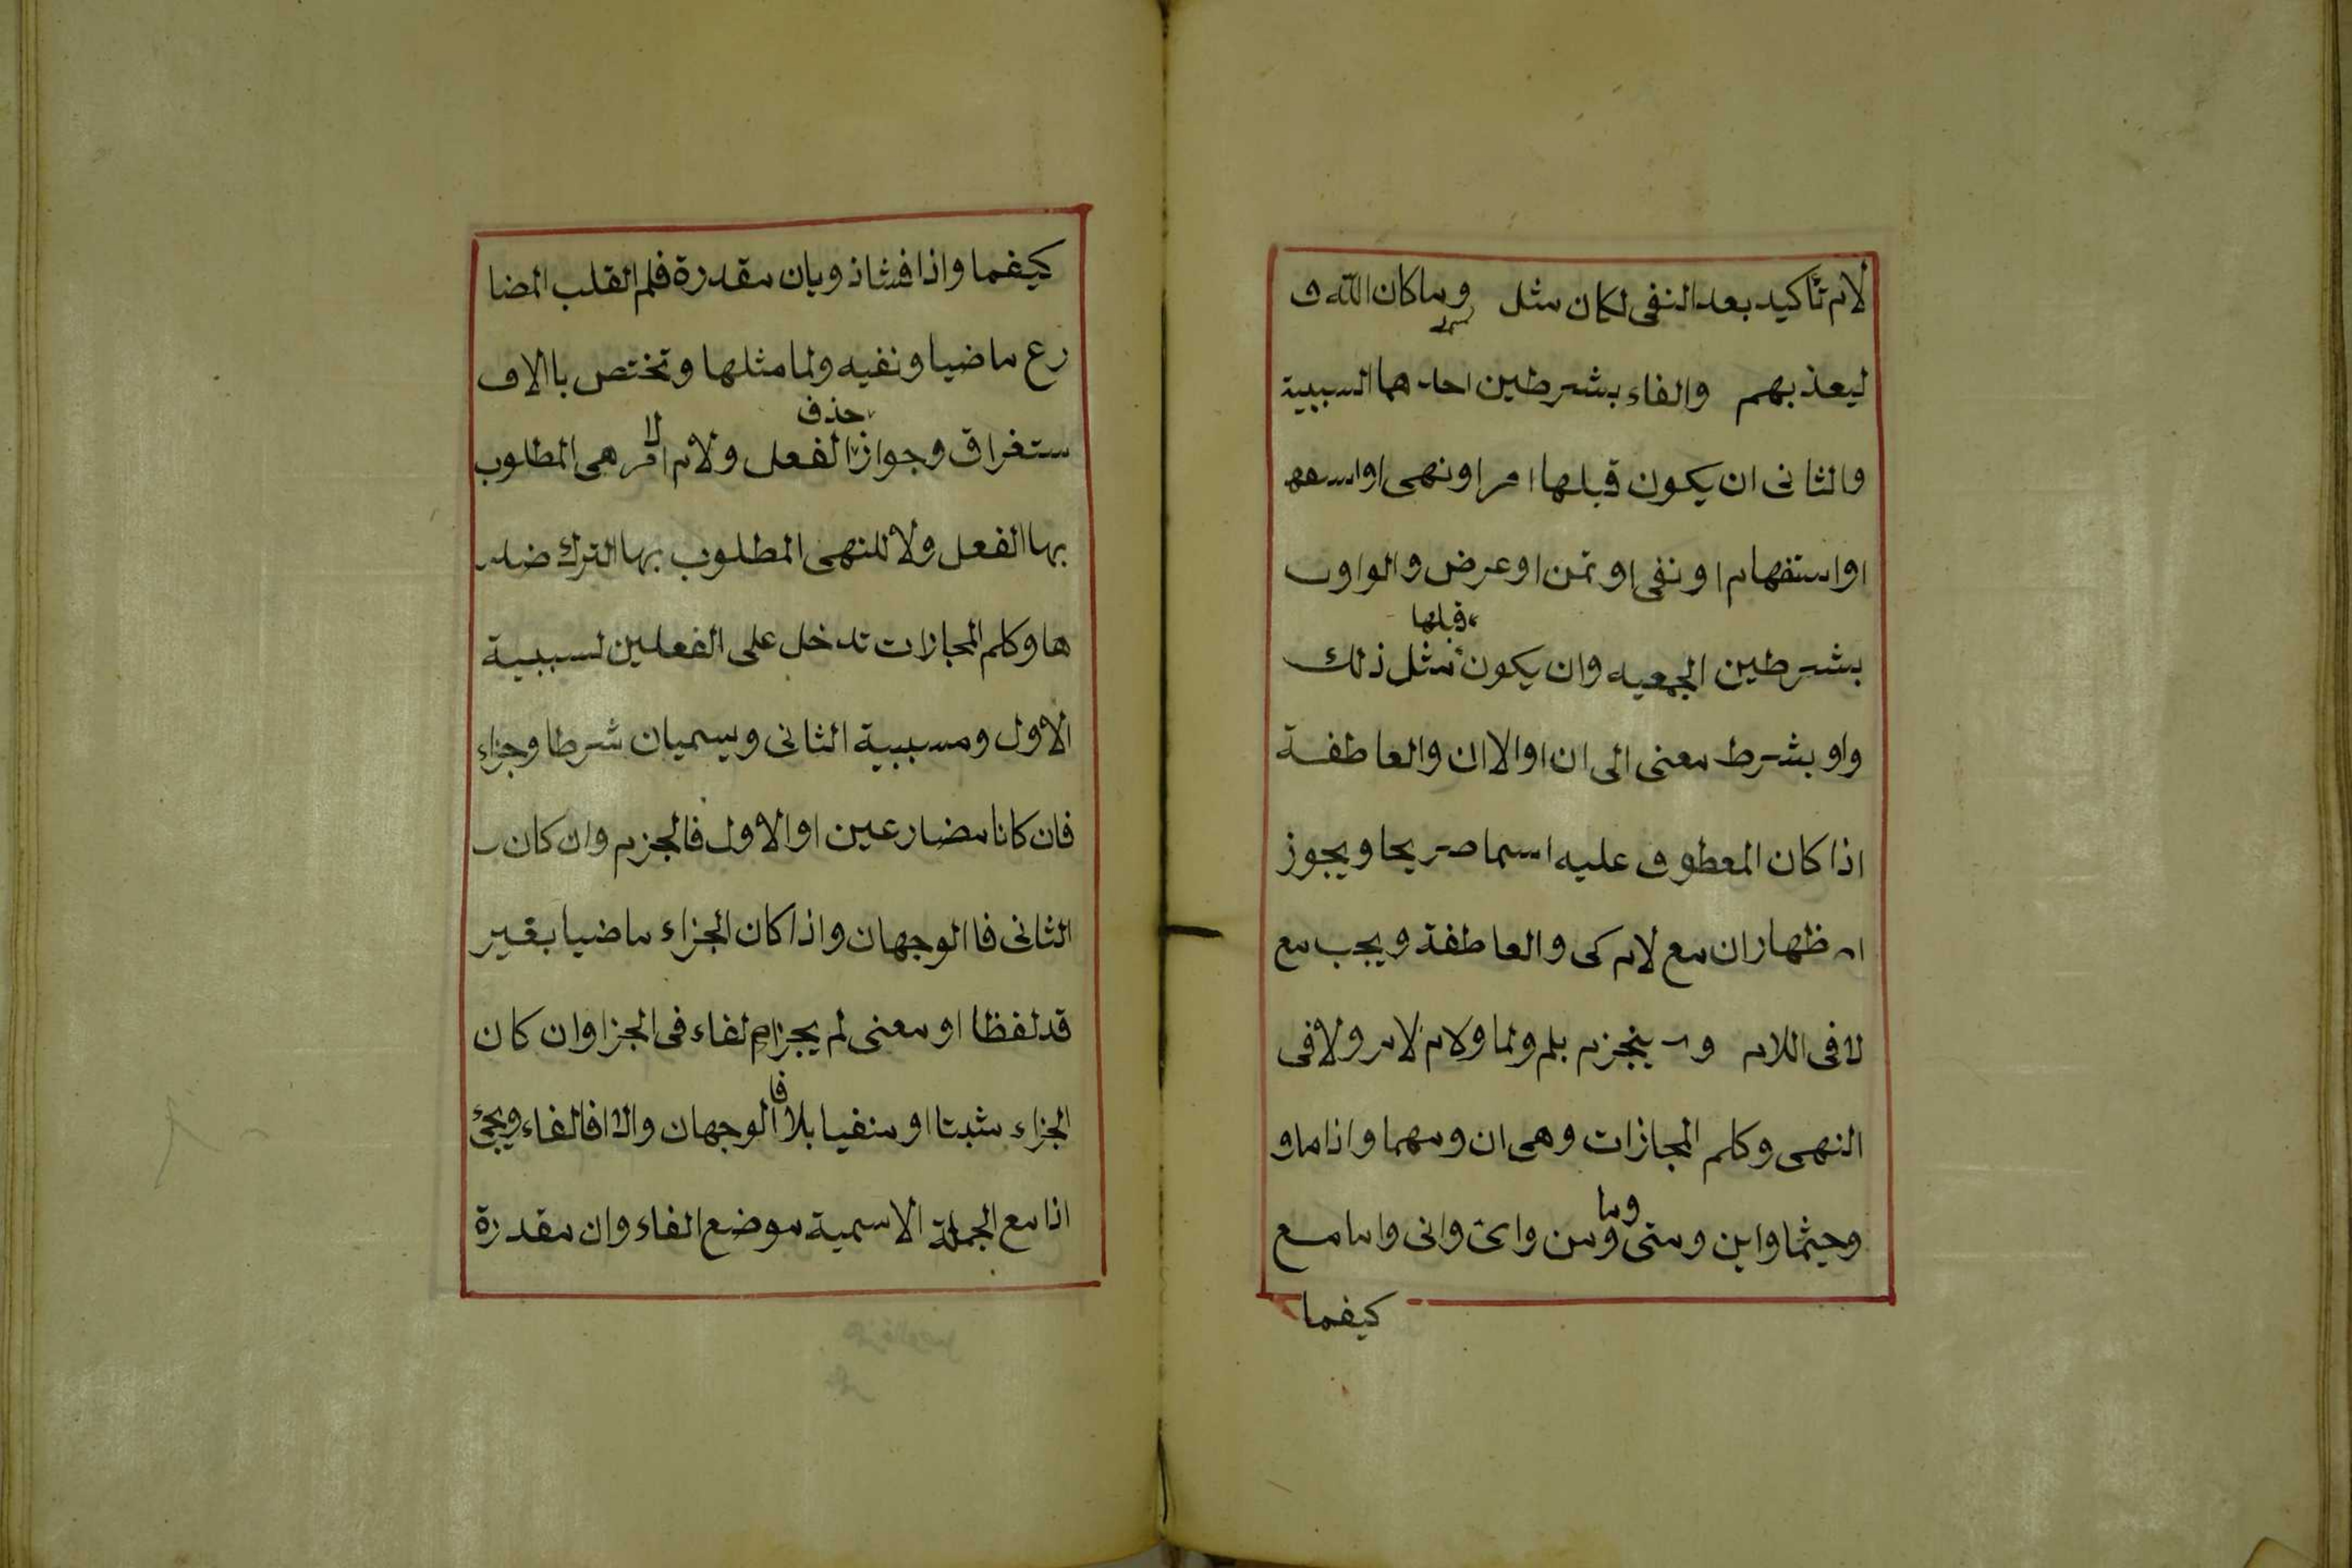 لام تأكيد بعد النفى لكان مثل وما كان الله
ليعذبهم والفاء بشرطين احدهما السببية
والثانى ان يكون قبلها امر او نهى او
او استفهام او نفى او تمن او عرض والواو
بشرطين الجمعيه وان يكون قبلها مثل ذلك
واو بشرط معنى الى ان او الا ان والعاطفة
اذا كان المعطوف عليه اسما صريحا ويجوز
اظهار ان مع لام كى والعاطفة ويجب مع
لا فى اللام وينجزم بلم ولما ولام لامر ولا فى
النهى وكلم المجازات وهى ان ومهما واذاما و
وحيثما واين ومتى وما ومن واى وانى واما مع
كيفما
كيفما واذا فشاذ وبان مقدرة فلم القلب المضا
رع ماضيا ونفيه ولما مثلها وتختص باالا
ستغراق وجواز حذف الفعل ولام الامر هى المطلوب
بها الفعل ولا للنهى المطلوب بها الترك ضد
ها وكلم المجازات تدخل على الفعلين لسببية
الاول ومسببية الثانى ويسميان شرطا وجزاء
فان كانا مضارعين او الاول فالجزم وان كان
الثانى فا الوجهان واذا كان الجزاء ماضيا بقير
قد لفظا او معنى لم يجز لفاء فى الجزا وان كان
الجزاء مثبتا او منفيا بلا فا الوجهان والا فالفاء ويجئ
اذا مع الجملة الاسمية موضع الفاء وان مقدرة